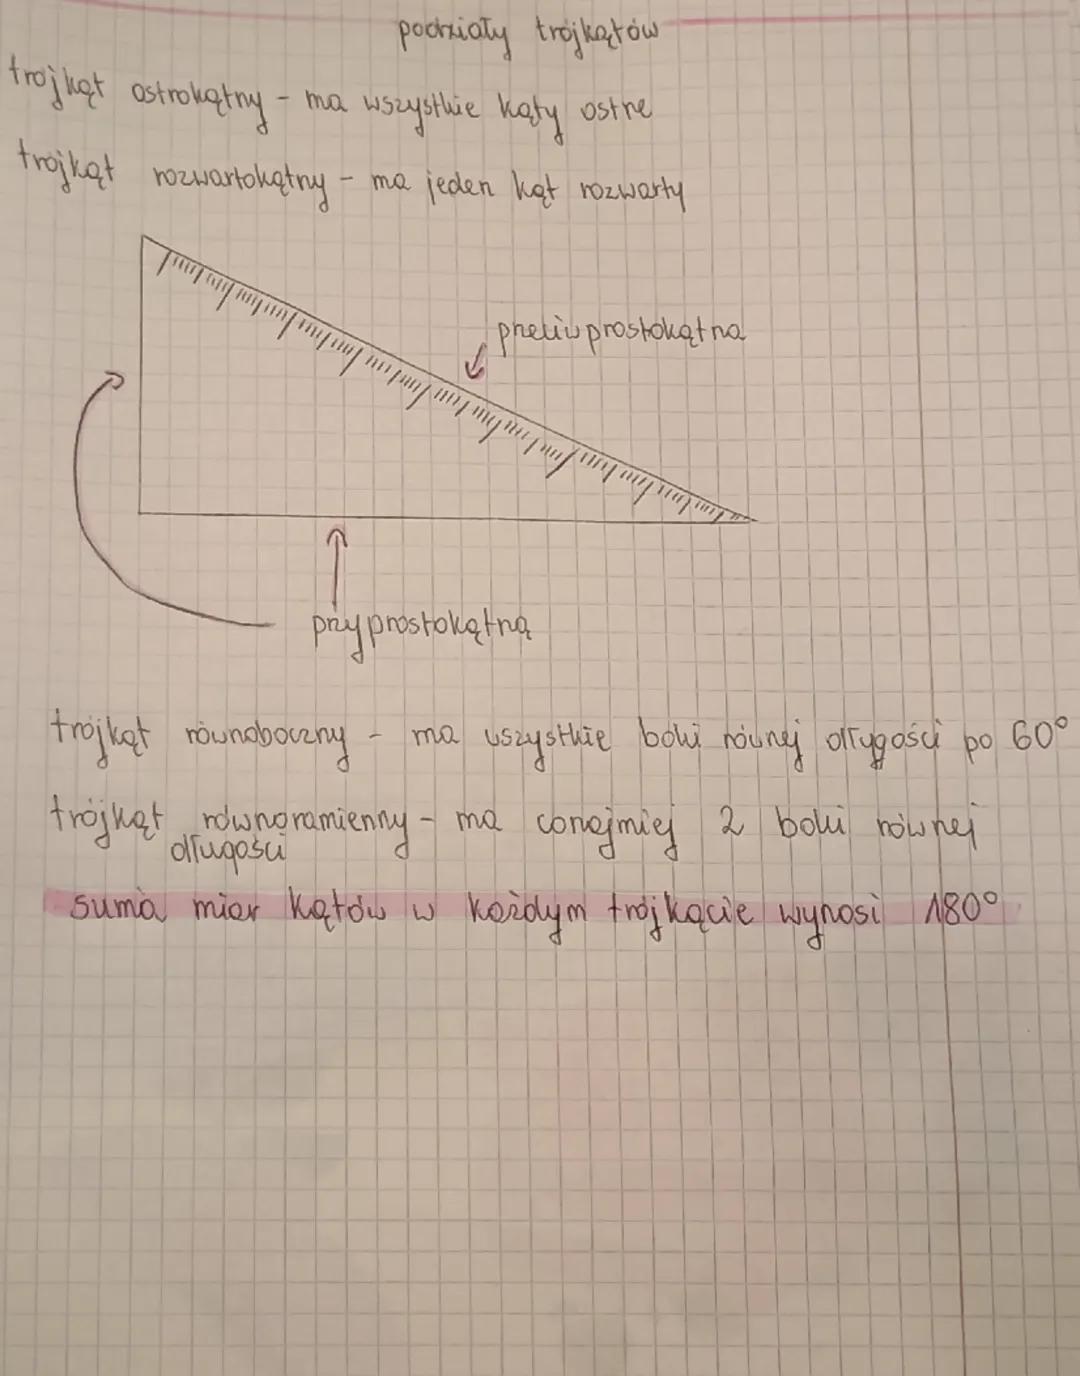 podziały trójkątów
trójkąt ostrokątny - ma wszystkie kąty ostre
trójkąt rozwartokątny - ma jeden kąt rozwarty
przeciwprostokątna
przyprostokątną
trójkąt równoboczny - ma wszystkie boki równej długości po 60°
trójkąt równoramienny - ma conajmiej 2 boki równej
długości
suma miar kątów w każdym trójkącie wynosi 180°